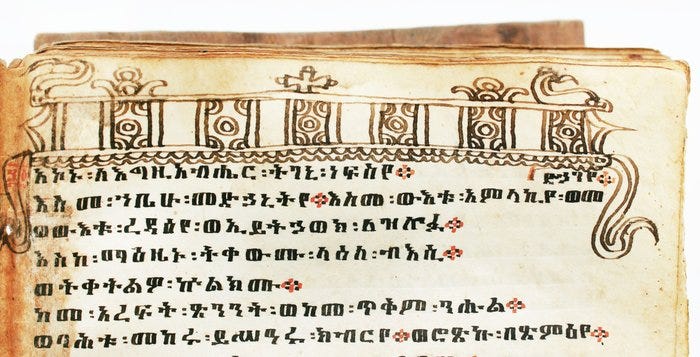 አኮኑ፡ለእግዚአብሔር፡ትገኒ፡ነፍስየ። ድኃንየ።
እስመ፡ኀቤሁ፡መድኃኒትየ።እስመ፡ውእቱ፡አምላኪየ፡ወመ
ወውእቱ፡ረዳዕየ፡ወኢይትኃወክ፡ለዝሎፉ።
እስከ፡ማዕዜኑ፡ትቀውሙ፡ላዕለ፡ብእሲ።
ወትቀትልዎ፡ኵልክሙ።
ከመ፡አረፍት፡ጽንንት፡ወከመ፡ጥቅም፡ንሑል።
ወባሕቱ፡መከሩ፡ይሥዓሩ፡ክብርየ።ወሮጽኩ፡በጽምዕየ።